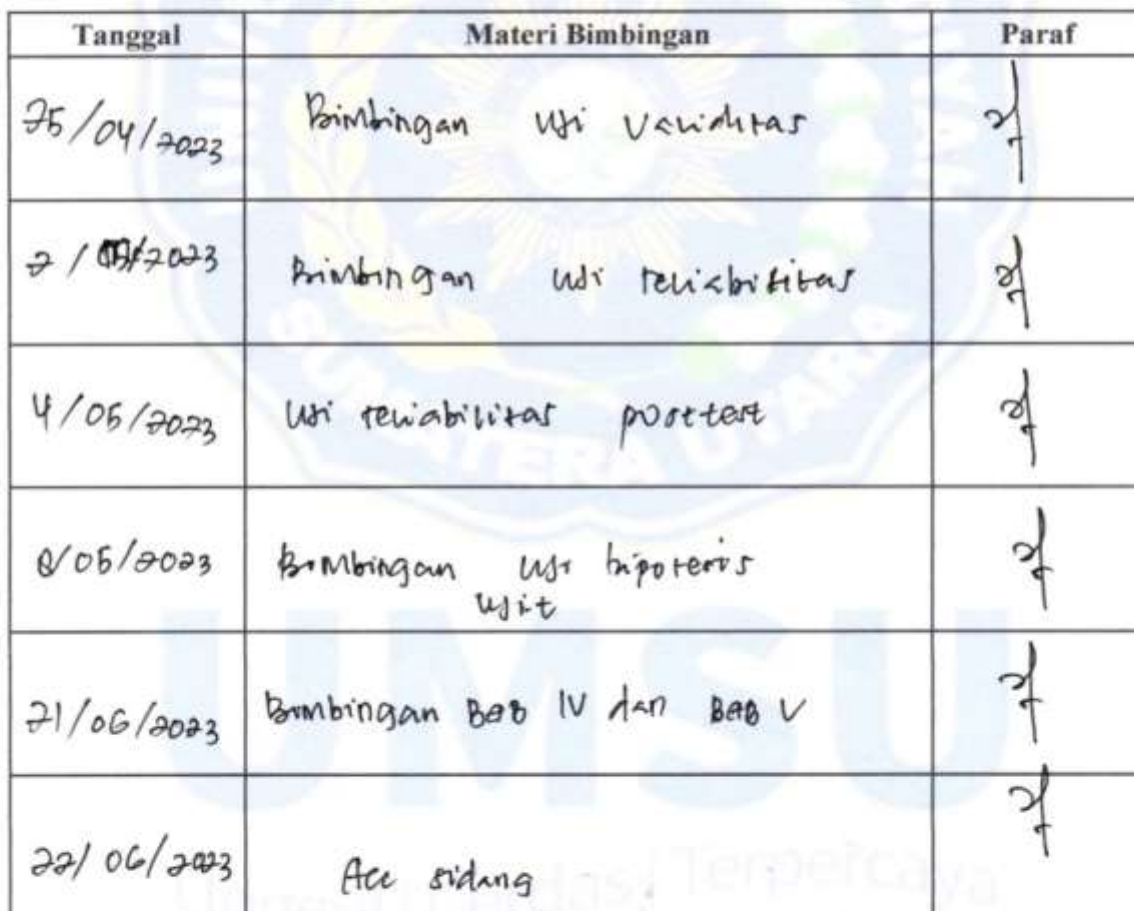 Tanggal Materi Bimbingan Paraf
25/04/2023 Bimbingan Uji Validitas
2/05/2023 Bimbingan Uji reliabilitas
4/05/2023 Uji reliabilitas posttest
8/05/2023 Bimbingan Uji hipotesis
Uji t
21/06/2023 Bimbingan BAB IV dan BAB V
22/06/2023 Acc sidang
SUMATERA UTARA
UMSU
Terpercaya